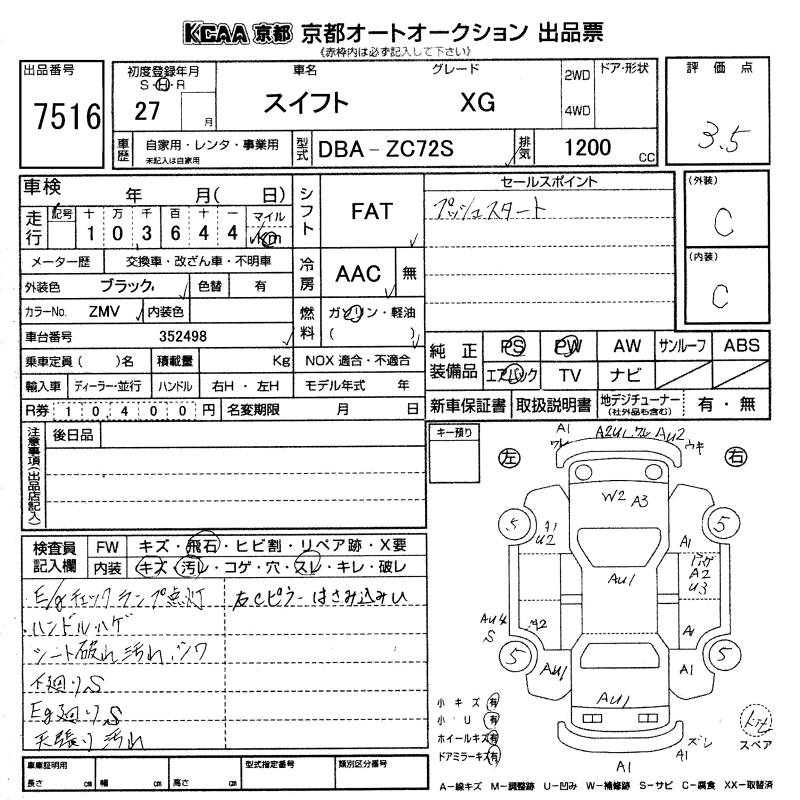 KCAA 京都 京都オートオークション 出品票
《赤枠内は必ず記入して下さい》
出品番号
7516
初度登録年月
S・H・R
27
月
車名
スイフト
グレード
XG
2WD
4WD
ドア・形状
車歴
自家用・レンタ・事業用
未記入は自家用
型式
DBA－ZC72S
排気
1200
CC
評価点
3.5
車検
年 月( 日)
走行
記号
十 万 千 百 十 一
1 0 3 6 4 4
マイル
Km
メーター歴
交換車・改ざん車・不明車
外装色
ブラック
色替
有
カラーNo.
ZMV
内装色
車台番号
352498
乗車定員( )名
積載量
Kg
NOX 適合・不適合
輸入車
ディーラー・並行
ハンドル
右H ・ 左H
モデル年式 年
R券
1 0 4 0 0 円
名変期限
月 日
シフト
FAT
冷房
AAC
無
燃料
ガソリン・軽油
( )
セールスポイント
プッシュスタート
(外装)
C
(内装)
C
純正装備品
PS
PW
AW
サンルーフ
ABS
エアバック
TV
ナビ
新車保証書
取扱説明書
地デジチューナー
(社外品も含む)
有・無
注意事項(出品店記入)
後日品
キー預り
検査員記入欄
FW
キズ・飛石・ヒビ割・リペア跡・X要
内装
キズ・汚レ・コゲ・穴・スレ・キレ・破レ
・E/gチェックランプ点灯 右Cピラーはさみ込み凹
・ハンドルハゲ
シート破れ 汚れ、シワ
下廻りS
Eg廻りS
天張り汚れ
左
右
A1
ワレ
A2U1、ワレ
AU2
ウキ
W2
A3
5
5
A1
U2
A1
AU1
A2
U3
AU4
S
A2
A1
5
5
AU1
A1
AU1
ズレ
A1
A1
小キズ 有
小U 有
ホイールキズ 有
ドアミラーキズ 有
スペア
A－線キズ M－調整跡 U－凹み W－補修跡 S－サビ C－腐食 XX－取替済
車庫証明用
長さ cm
幅 cm
高さ cm
型式指定番号
類別区分番号